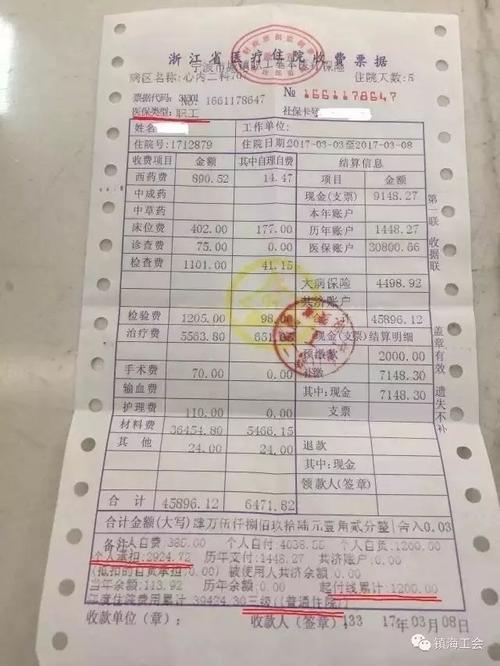 浙江省医疗住院收费票据
宁波市城镇职工基本医疗保险
病区名称:心内二科 住院天数:5
票据代码:30301 № 1661178647
NO: 1661178647
医保类型: 职工 社保卡号
姓名: 工作单位:
住院号:1712879 住院日期:2017-03-03至2017-03-08
收费项目 金额 其中自理自费 结算信息
西药费 890.52 14.47 项目 金额
中成药 现金(支票) 9148.27
中草药 本年账户
床位费 402.00 177.00 历年账户 1448.27
诊查费 75.00 0.00 医保账户 30800.66
检查费 1101.00 41.15
大病保险 4498.92
共济账户
检验费 1205.00 98.00 45896.12
治疗费 5563.80 651.05 现金(支票)结算明细
预缴款 2000.00
手术费 70.00 0.00 补缴 7148.30
输血费 其中:现金 7148.30
护理费 110.00 0.00 支票
材料费 36454.80 5466.15
其他 24.00 24.00 退款
其中:现金
领款人(签章)
合计 45896.12 6471.82
合计金额(大写) 肆万伍仟捌佰玖拾陆元壹角贰分整(舍入0.03
备注:人自费:385.00 个人自付:4038.55 个人自负:1200.00
个人承担:2924.72 历年支付:1448.27 共济账户:
(抵扣的自负承担:0.00) 被使用人共济余额:0.00
当年余额:113.92 历年余额:0.00 起付线累计:1200.00
年度住院费用累计:39424.30三级(普通住院)
收款单位(章): 收款人(签章) 133 17年03月08日
第一联 收据联
盖章有效 遗失不补
镇海工会